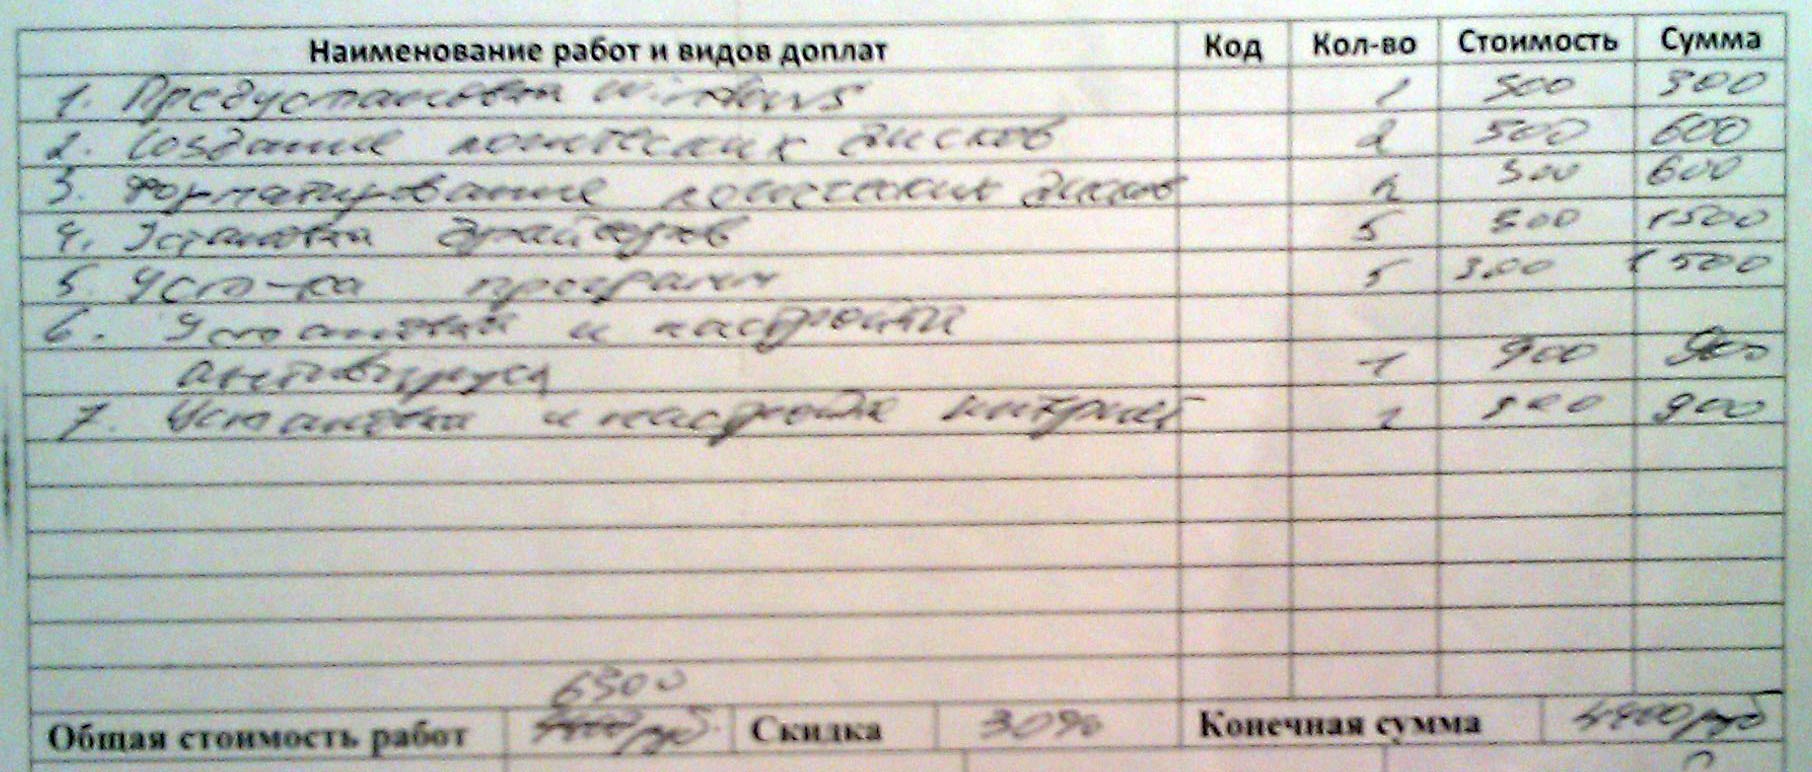 Наименование работ и видов доплат Код Кол-во Стоимость Сумма
1. Предустановка windows 1 300 300
2. Создание логических дисков 2 300 600
3. Форматирование логических дисков 2 300 600
4. Установка драйверов 5 300 1500
5. Уст-ка программ 5 300 1500
6. Установка и настройки
антивируса 1 900 900
7. Установка и настройка интернет 1 900 900
6300
Общая стоимость работ Скидка 30% Конечная сумма 4400 руб